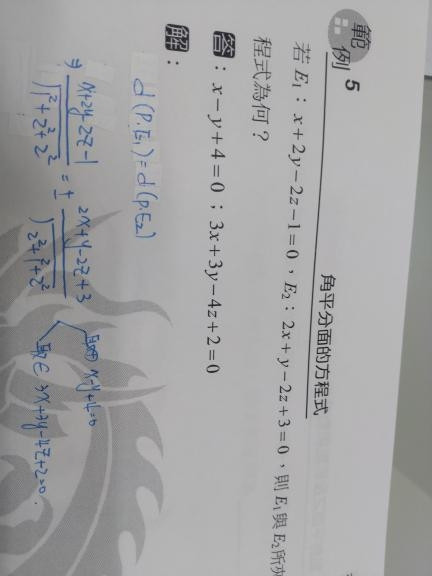 範例 5 角平分面的方程式
若 E₁：x+2y−2z−1=0，E₂：2x+y−2z+3=0，則 E₁與 E₂所
程式為何？
答：x−y+4=0；3x+3y−4z+2=0
解：
d(P.E₁)=d(P.E₂)
⇒ x+2y-2z-1 / √1²+2²+2² = ± 2x+y-2z+3 / √2²+1²+2²
取⊕ x-y+4=0
取⊖ 3x+3y-4z+2=0.